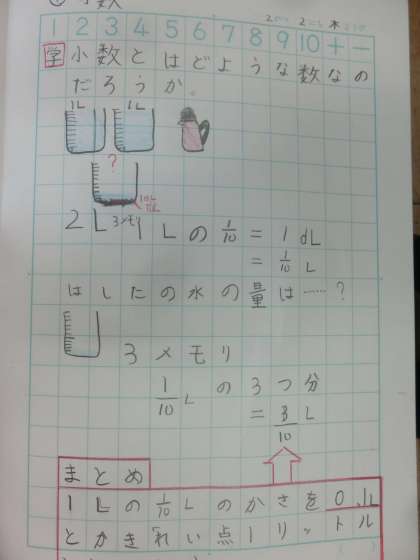 小数
1 2 3 4 5 6 7 8 9 10 + −
学 小数とはどような数なの
だろうか。
1L 1L
?
2L 3メモリ 1Lの1/10 = 1dL
= 1/10 L
はしたの水の量は……?
3メモリ
1/10 Lの3つ分
= 3/10 L
まとめ
1Lの1/10 Lのかさを0.1L
とかき「れい点一リットル